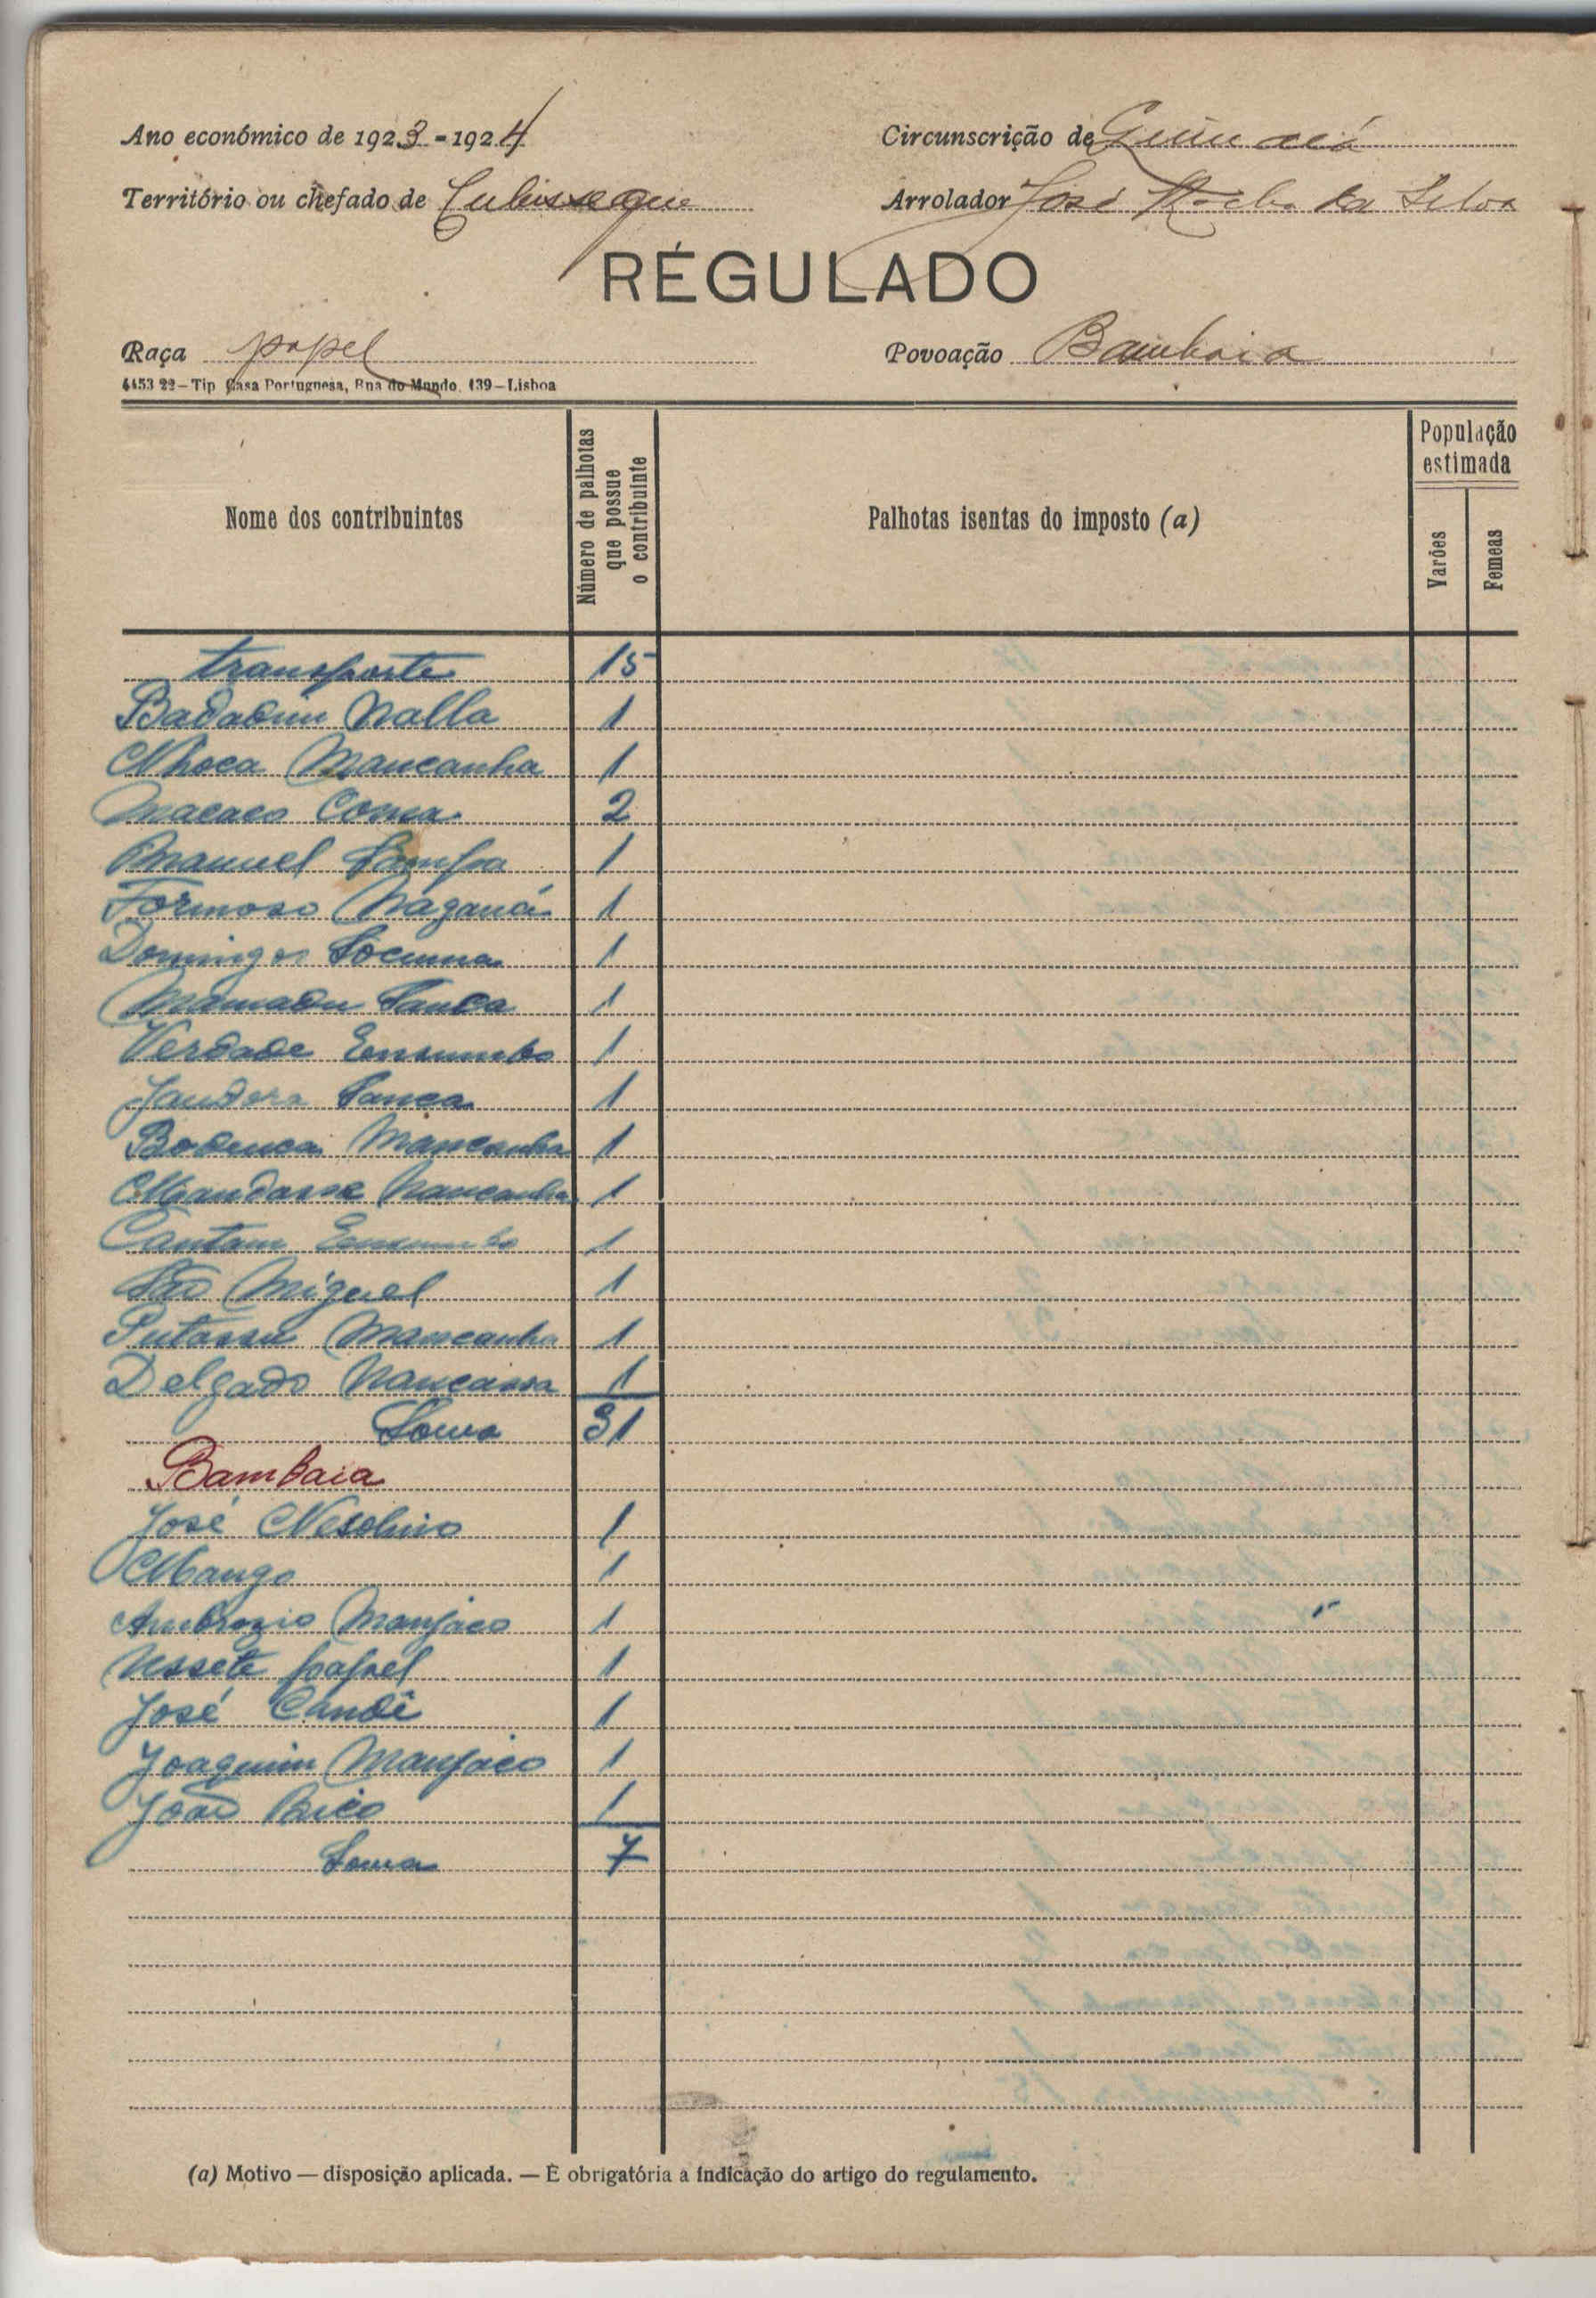 Ano económico de 1923-1924
Circunscrição de
Território ou chefado de Cubisseque
Arrolador José Rocha da Silva
RÉGULADO
Raça papel
Povoação Bambaia
4453 22–Tip Casa Portuguesa, Rua do Mundo, 139–Lisboa
Nome dos contribuintes
Número de palhotas que possue o contribuinte
Palhotas isentas do imposto (a)
População estimada
Varões
Femeas
transporte 15
Badadim Nalla 1
Nhoca Mancanha 1
Macaco Coma 2
Manuel Sampa 1
Formoso Naganá 1
Domingos Socuma 1
Mamadu Sanca 1
Verdade Ensumbo 1
Jandera Sanca 1
Bodenca Mancanha 1
Mandasse Mancanha 1
Cantam Ensumbo 1
São Miguel 1
Putassu Mancanha 1
Delgado Nancassa 1
Soma 31
Bambaia
José 1
Mango 1
Ambrozio Manjaco 1
Ussete papel 1
José Candê 1
Joaquim Manjaco 1
João Bico 1
Soma 7
(a) Motivo — disposição aplicada. — É obrigatória a indicação do artigo do regulamento.